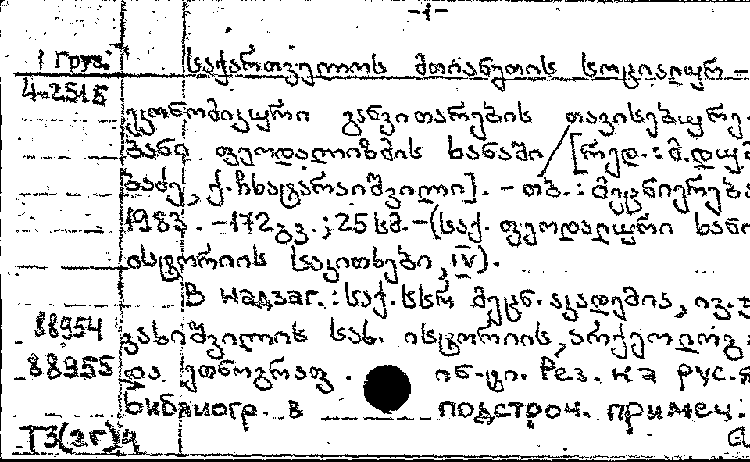 -1-
Груз. საქართველოს მთიანეთის სოციალურ-
4-2515
ეკონომიკური განვითარების თავისებურე-
ბანი ფეოდალიზმის ხანაში [რედ.: მ.დუმ
ბაძე, ქ.ჩხატარაიშვილი]. - თბ.: მეცნიერება
1983. -172გვ.; 25სმ.-(საქ. ფეოდალური ხანი
ისტორიის საკითხები, IV).
В надзаг.: საქ. სსრ მეცნ. აკადემია, ივ. ჯ
88954 ვახიშვილის სახ. ისტორიის, არქეოლოგ
88955 და ეთნოგრაფ. ინ-ტი. Рез. на рус.я
Библиогр. в подстроч. примеч.
Т3(2Г)4